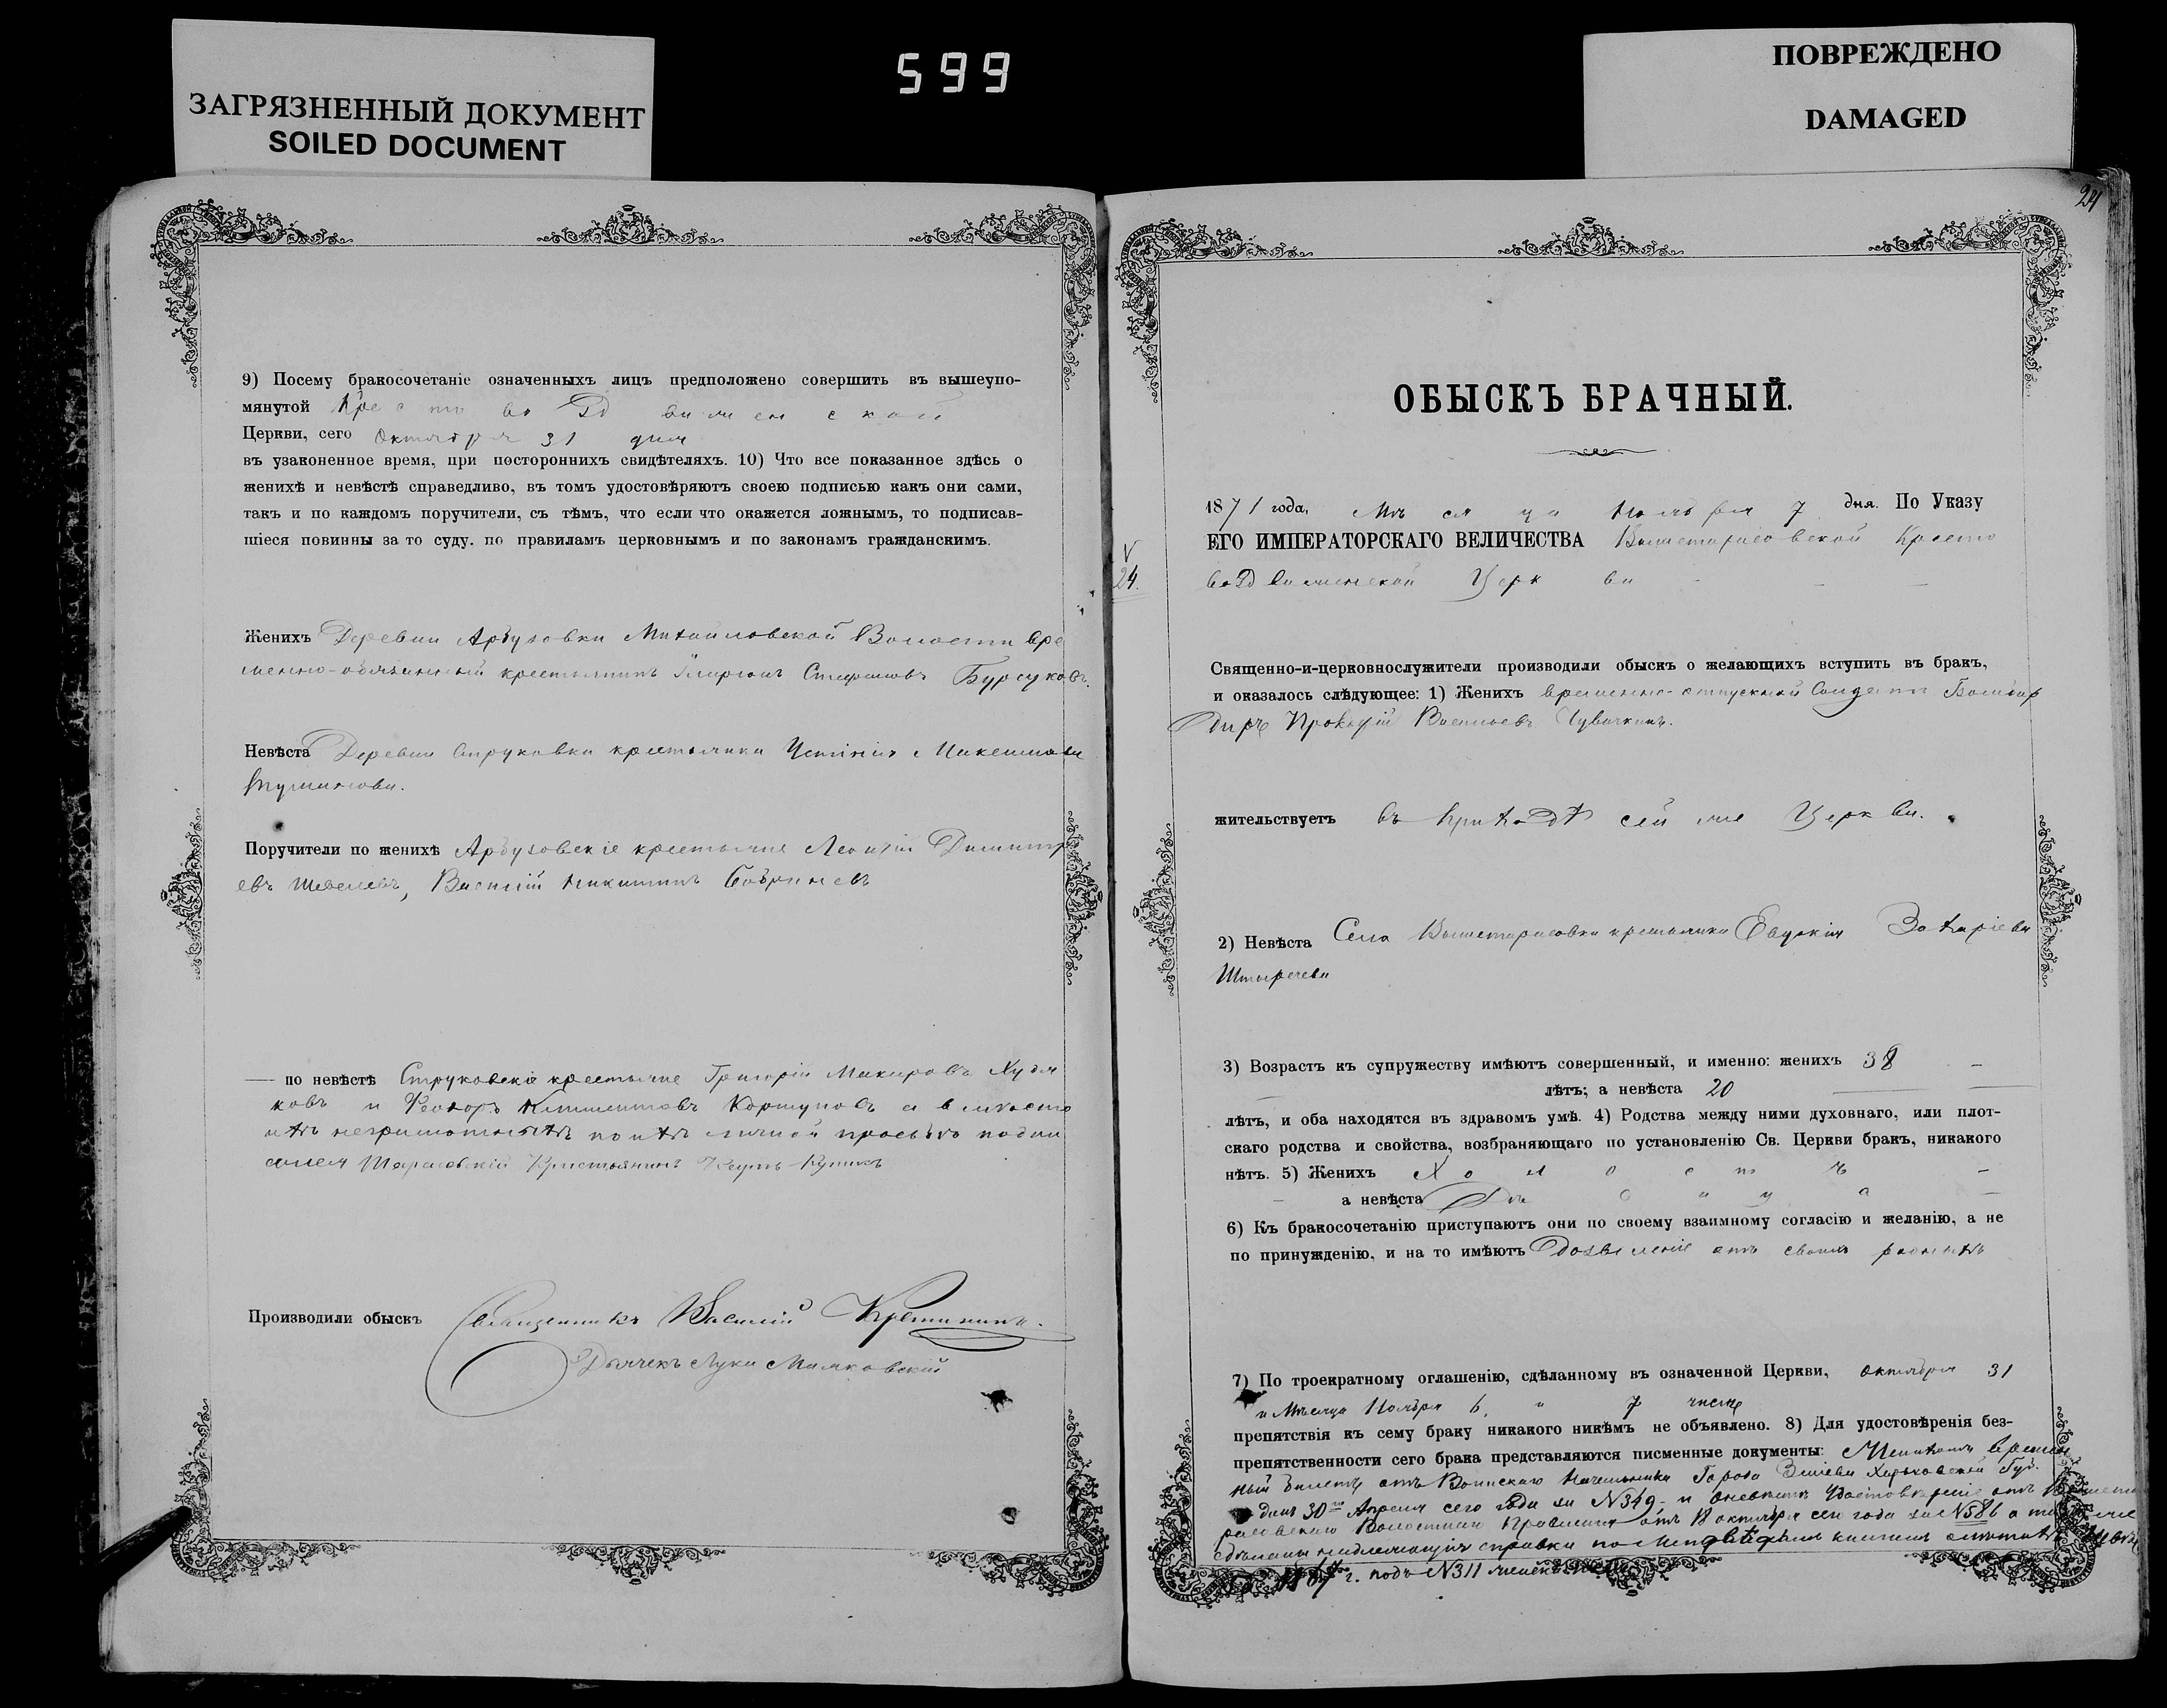 ЗАГРЯЗНЕННЫЙ ДОКУМЕНТ
SOILED DOCUMENT
599
ПОВРЕЖДЕНО
DAMAGED
9) Посему бракосочетаніе означенныхъ лицъ предположено совершить въ вышеупо-
мянутой Крестовоздвиженской
Церкви, сего Октября 31 дня
въ узаконенное время, при постороннихъ свидѣтеляхъ. 10) Что все показанное здѣсь о
женихѣ и невѣстѣ справедливо, въ томъ удостовѣряютъ своею подписью какъ они сами,
такъ и по каждомъ поручители, съ тѣмъ, что если что окажется ложнымъ, то подписав-
шіеся повинны за то суду. по правиламъ церковнымъ и по законамъ гражданскимъ.
Женихъ Деревни Арбузовки Михайловской Волости вре
менно-обязанный крестьянинъ Бурсуковъ.
Невѣста Деревни Струковки крестьянка
Поручители по женихѣ Арбузовскіе крестьяне Димитр
евъ Шевелевъ, Василій Никитинъ
— по невѣстѣ Струковскіе крестьяне Григорій Макаровъ Худя
ковъ и Коршуновъ а вмѣсто
ихъ неграмотныхъ по ихъ личной просьбѣ подпи
сался Тарасовскій Крестьянинъ
Производили обыскъ Священникъ Василій
Дьячекъ Лука
24
ОБЫСКЪ БРАЧНЫЙ.
1871 года, Мѣсяца Ноября 7 дня. По Указу
ЕГО ИМПЕРАТОРСКАГО ВЕЛИЧЕСТВА Вышетарасовской Кресто
24. воздвиженской Церкви
Священно-и-церковнослужители производили обыскъ о желающихъ вступить въ бракъ,
и оказалось слѣдующее: 1) Женихъ временно-отпускной Солдатъ Бомбар
диръ Прокофій Васильевъ Чувичкинъ.
жительствуетъ въ приходѣ сей же Церкви.
2) Невѣста Села Вышетарасовки крестьянка Евдокія Захаріева
3) Возрастъ къ супружеству имѣютъ совершенный, и именно: женихъ 38
лѣтъ; а невѣста 20
лѣтъ, и оба находятся въ здравомъ умѣ. 4) Родства между ними духовнаго, или плот-
скаго родства и свойства, возбраняющаго по установленію Св. Церкви бракъ, никакого
нѣтъ. 5) Женихъ Холостъ
а невѣста Дѣвица
6) Къ бракосочетанію приступаютъ они по своему взаимному согласію и желанію, а не
по принужденію, и на то имѣютъ дозволеніе отъ своихъ родныхъ
7) По троекратному оглашенію, сдѣланному въ означенной Церкви, октября 31
и Мѣсяца Ноября 6, и 7 числѣ
препятствія къ сему браку никакого никѣмъ не объявлено. 8) Для удостовѣренія без-
препятственности сего брака представляются писменные документы: Женихомъ времен
ный билетъ отъ Воинскаго Начальника Города Зміева Харьковской Губ.
данъ 30го Апрѣля сего года за №349 и удостовѣреніе отъ Вышета
расовскаго Волостнаго Правленія отъ 18 октября сего года за №586 а также
сдѣланы надлежащія справки по книгамъ
г. подъ №311